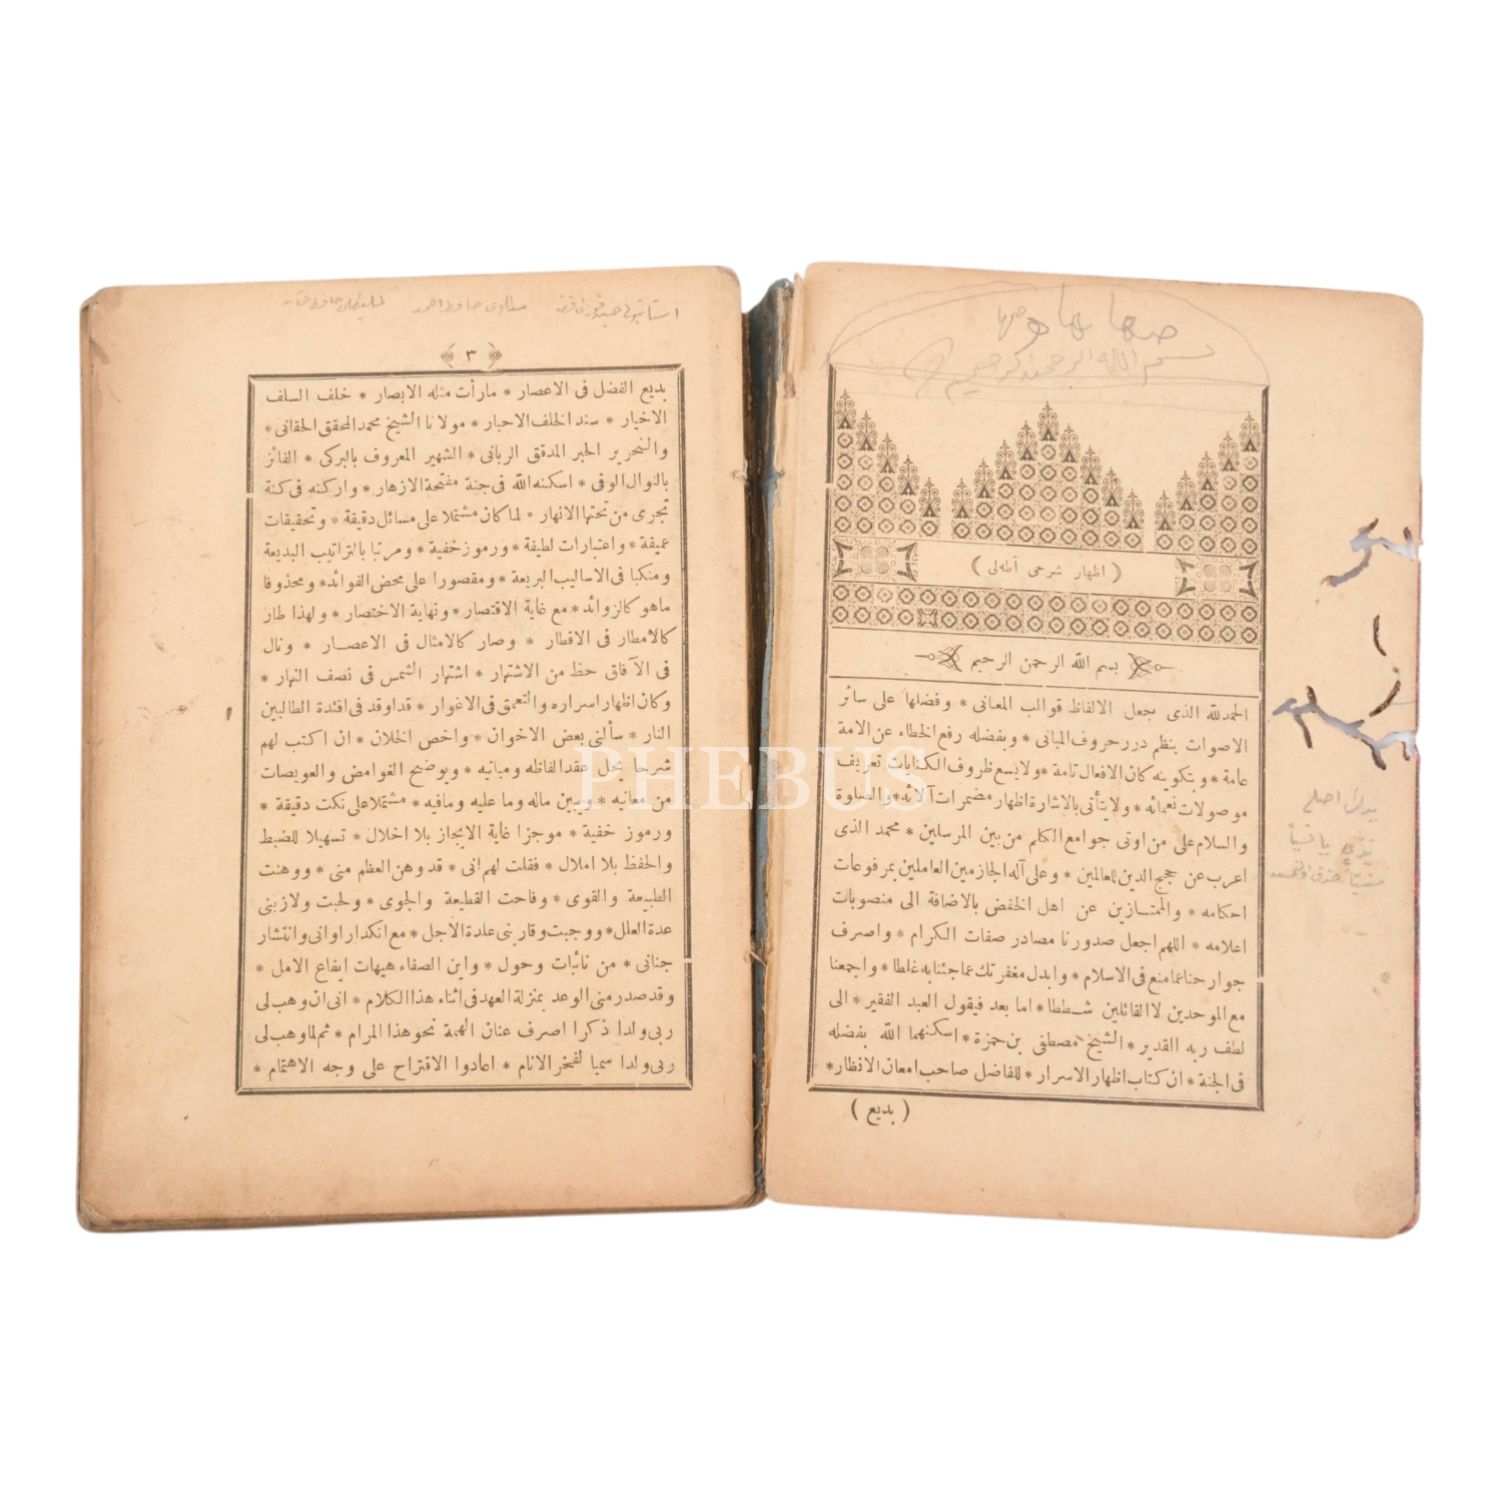 بسم الله الرحمن الرحيم
( اظهار شرحى اطه‌لى )
بسم الله الرحمن الرحيم
الحمدلله الذى جعل الالفاظ قوالب المعانى * وفضلها على سائر
الاصوات بنظم درر حروف المبانى * وبفضله رفع الخطاء عن الامة
عامة * وبتكوينه كان الافعال تامة * ولايسع ظروف الكنايات تعريف
موصولات نعمائه * ولايتأتى بالاشارة اظهار مضمرات آلائه * والصلوة
والسلام على من اوتى جوامع الكلم من بين المرسلين * محمد الذى
اعرب عن حجج الدين للعالمين * وعلى آله الجازمين العاملين بمرفوعات
احكامه * والممتازين عن اهل الخفض بالاضافة الى منصوبات
اعلامه * اللهم اجعل صدورنا مصادر صفات الكرام * واصرف
جوارحنا عما منع فى الاسلام * وابدل مغفرتك عما جئنا به غلطا * واجمعنا
مع الموحدين لا القائلين شططا * اما بعد فيقول العبد الفقير * الى
لطف ربه القدير * الشيخ مصطفى بن حمزة * اسكنهما الله بفضله
فى الجنة * ان كتاب اظهار الاسرار * للفاضل صاحب امعان الانظار *
( بديع )
٣
بديع الفضل فى الاعصار * مارأت مثله الابصار * خلف السلف
الاخيار * سند الخلف الاحبار * مولانا الشيخ محمد المحقق الحقانى *
والنحرير الحبر المدقق الربانى * الشهير المعروف بالبركى * الفائز
بالنوال الوفى * اسكنه الله فى جنة مفتحة الازهار * واركنه فى كنة
تجرى من تحتها الانهار * لما كان مشتملا على مسائل دقيقة * وتحقيقات
عميقة * واعتبارات لطيفة * ورموز خفية * ومرتبا بالتراتيب البديعة
ومنكبا فى الاساليب البريعة * ومقصورا على محض الفوائد * ومحذوفا
ماهو كالزوائد * مع غاية الاقتصار * ونهاية الاختصار * ولهذا طار
كالامطار فى الاقطار * وصار كالامثال فى الاعصار * ونال
فى الآفاق حظ من الاشتهار * اشتهار الشمس فى نصف النهار *
وكان اظهار اسراره والتعمق فى الاغوار * قد اوقد فى افئدة الطالبين
النار * سألنى بعض الاخوان * واخص الخلان * ان اكتب لهم
شرحا يحل عقد الفاظه ومبانيه * ويوضح الغوامض والعويصات
من معانيه * ويبين ماله وما عليه ومافيه * مشتملا على نكت دقيقة *
ورموز خفية * موجزا غاية الايجاز بلا اخلال * تسهيلا للضبط
والحفظ بلا املال * فقلت لهم انى * قد وهن العظم منى * ووهنت
الطبيعة والقوى * وفاحت القطيعة والجوى * ولحبت ولازبنى
عدة العلل * ووجبت وقاربنى علدة الاجل * مع انكدار اوانى وانتشار
جنانى * من نائبات وحول * واين الصفاء هيهات ايفاع الامل *
وقد صدر منى الوعد بمنزلة العهد فى اثناء هذا الكلام * انى ان وهب لى
ربى ولدا ذكرا اصرف عنان الهمة نحو هذا المرام * ثم لما وهب لى
ربى ولدا سميا لفخر الانام * اعادوا الاقتراح على وجه الاهتمام *
PHEBUS